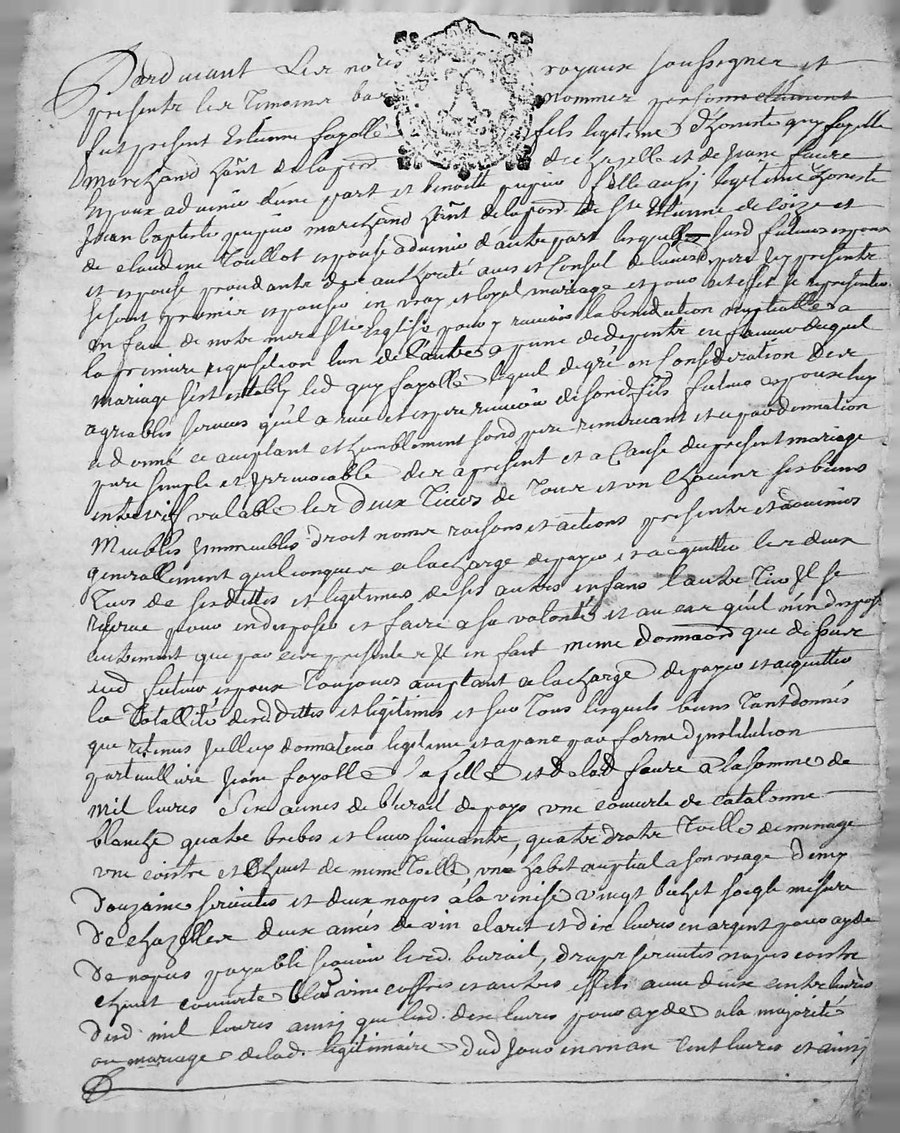 Pardevant Les nores royaux soussignes et
presents les Temoins bas nommes personnellement
fut present Estienne fayolle fils legitime d'honeste guy fayolle
marchand hant de la par de Chazelle et de Jeane faure
Epoux advenir d'une part et benoitte pupier fille aussy legitime d'honeste
Jean baptiste pupier marchand hant de la par de Ste Etienne de Coize et
de claudine Toullot espouse advenir d'autre part lesquels surd futurs espoux
et espouse procedants de authorité avis et Conseil de leursd pere Icy presents
se sont promis espouser en vray et loyal mariage et pour cet effet se representer
en face de notre mere Ste Eglise pour y recevoir la benediction nuptialle a
la premiere requisition lun de l'autre a peine de depents en faveur duquel
mariage s'est estably led guy fayolle lequel de gré en Consideration des
agreables services qu'il a receu et espere recevoir desond fils futur espoux luy
a donné ce aceptant et humblement sond pere remerciant et ce par donnation
pure simple et Irrevocable des a present et a Cause du present mariage
entre vifs valable les deux Tiers de Tous et un Chacuns ses biens
Meubles Immeubles droit noms raisons et actions presents et avenirs
generallement quelconques a la charge de payer et acquitter les deux
Tiers de ses dettes et legitimes de ses autres enfans l'autre Tiers Il se
reserve pour en disposer et faire a sa volonté et au cas qu'il n'en dispose
autrement que par ces presentes Il en fait meme donnaon que dessus
aud futur espoux Toujours aceptant a la charge de payer et acquitter
la Totallité desd dettes et legitimes et sur Tous lesquels biens Tant donnés
que retenus Icelluy donnateur legitime et apane par forme d'institution
particulliere Jeane fayolle sa fille et de lad faure a la somme de
mil livres Six aunes de burail de pays une couverte de catalonne
blanche quatre brebis et leurs suivants, quatre draps Toille de menage
une cointre et Chuit de meme Toille, un habit nuptial a son usage demy
Douzaine serviettes et deux napes a la venise vingt bichet soigle mesure
De chazelles deux anées de vin claret et dix livres en argent pour ayde
De nopces payable scavoir lesd. burail, draps serviettes napes cointre
chuit couverte bled vin coffres et autres effets avec deux cents livres
Desd. mil livres ainsy que lesd. dix livres pour ayde a la majorité
ou mariage de lad. legitimaire dud Jour en un an Cent livres et ainsy